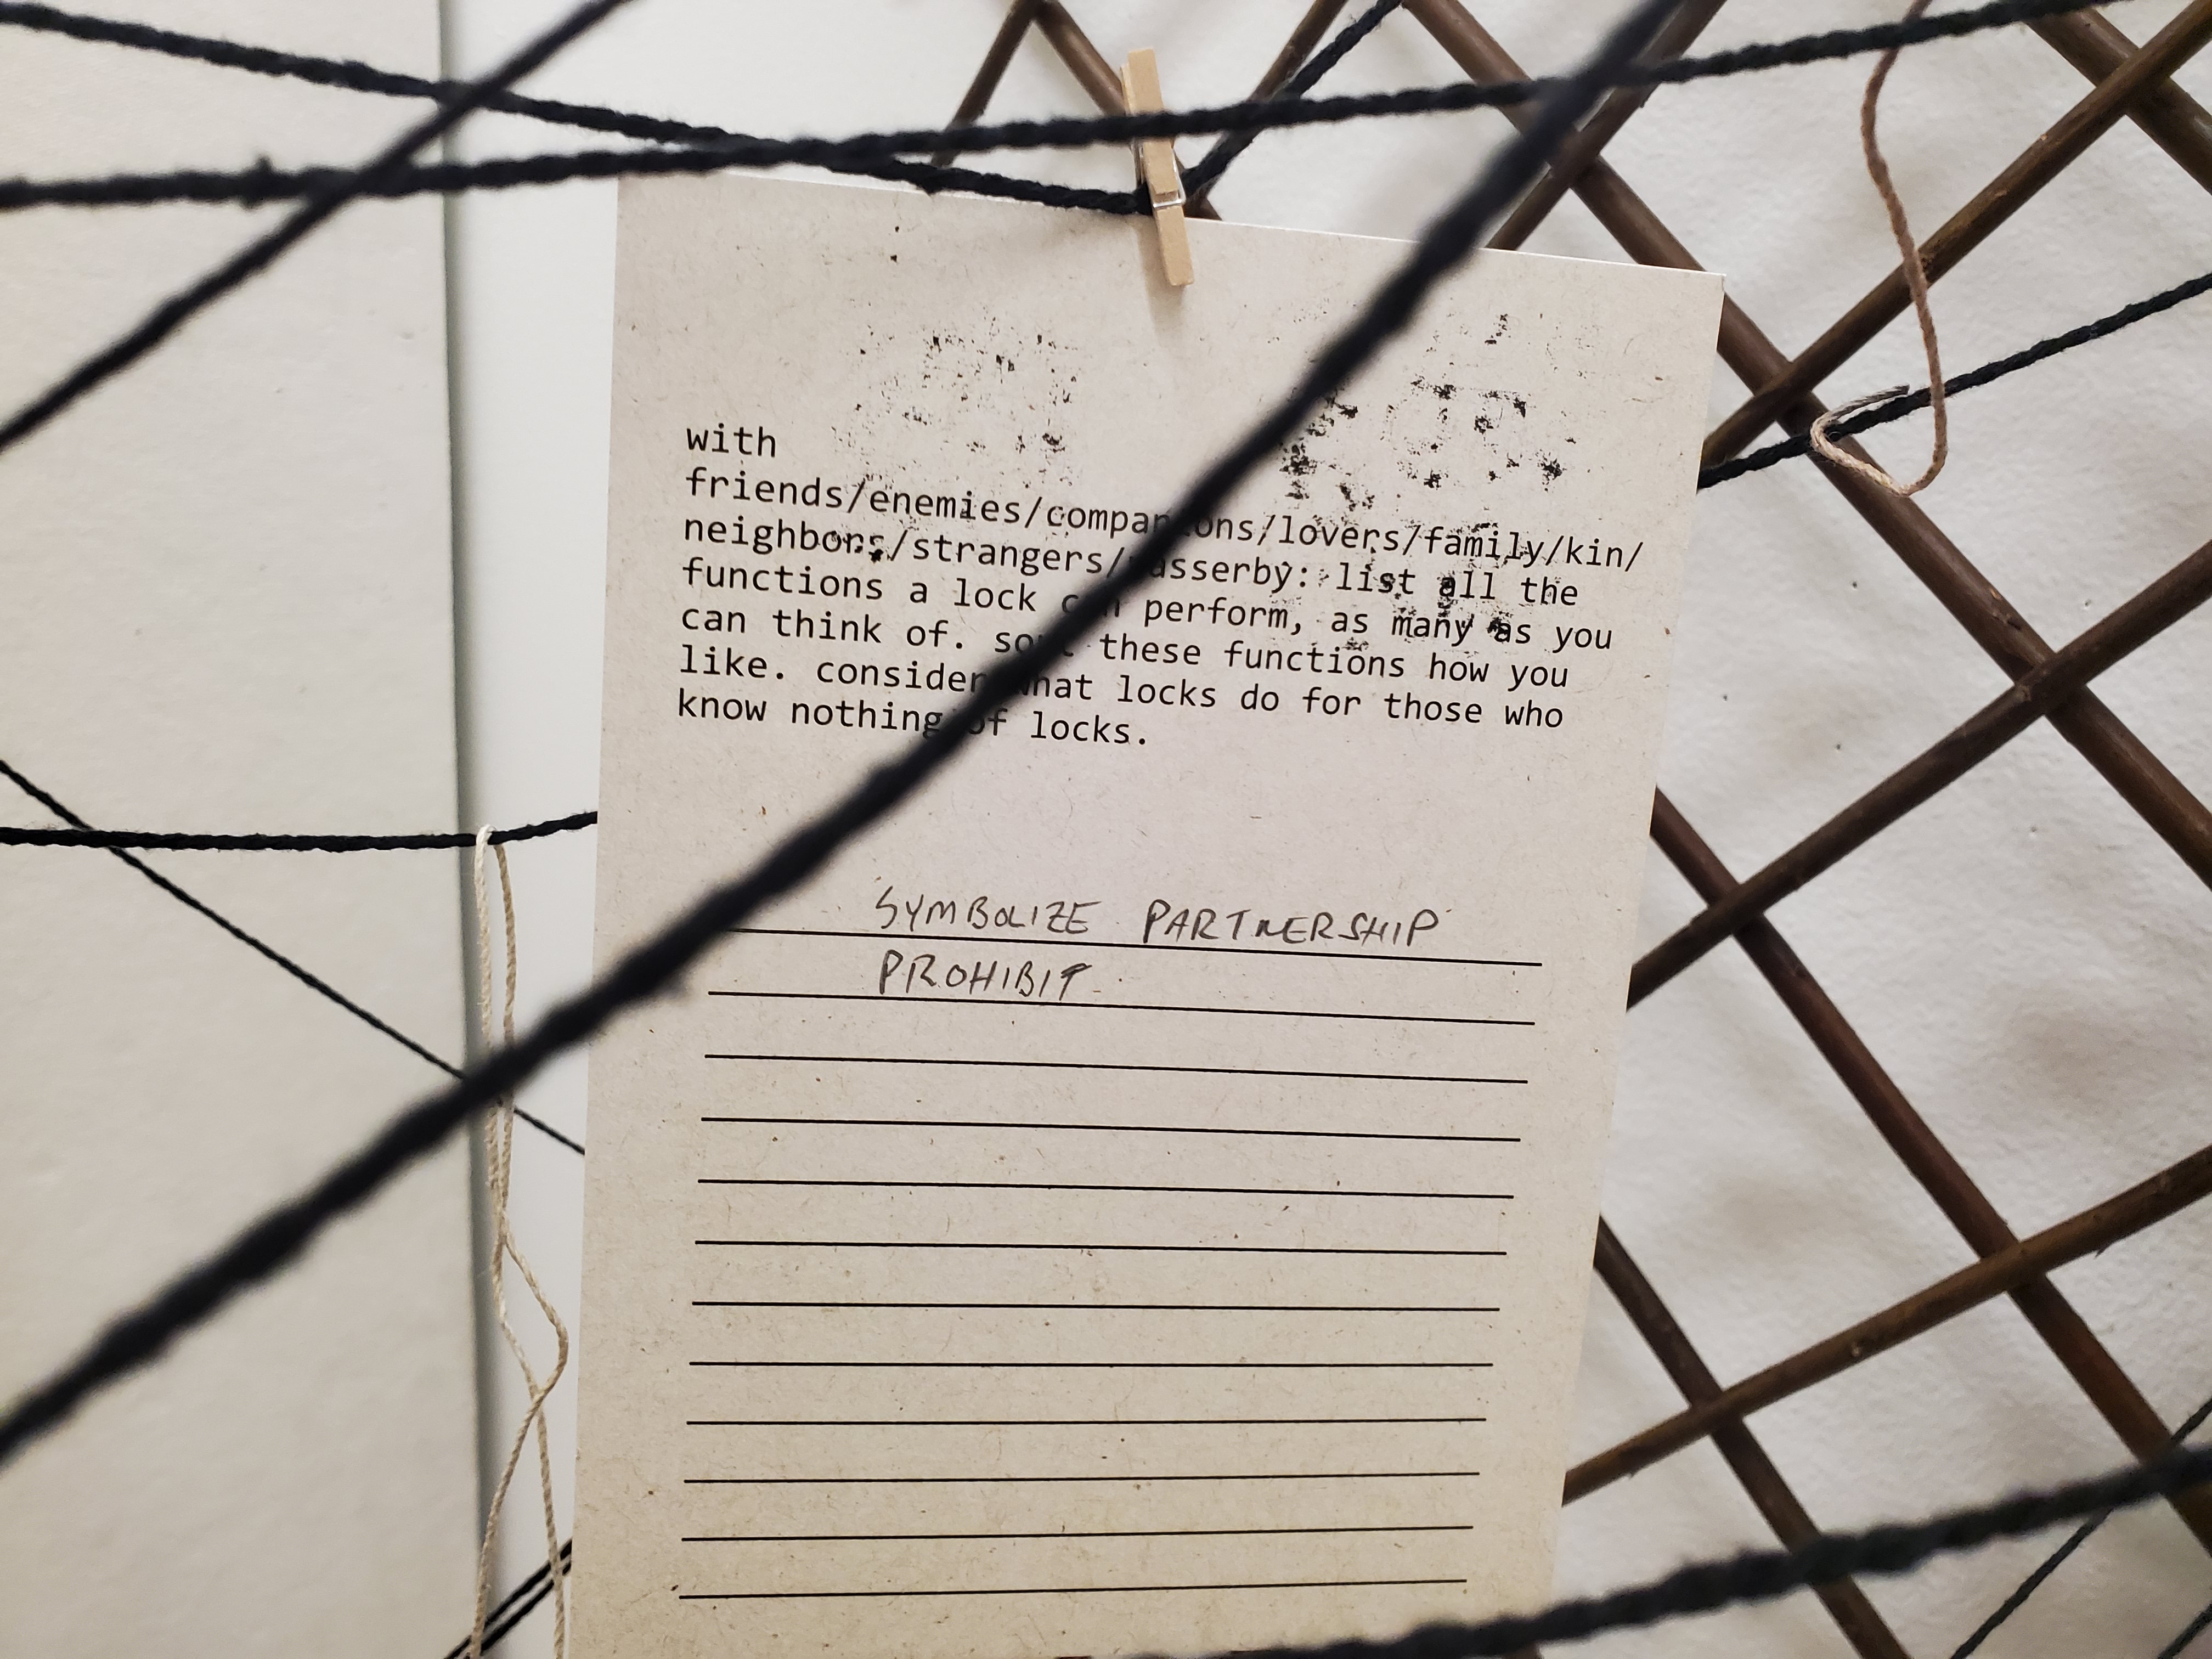 with
friends/enemies/companions/lovers/family/kin/
neighbors/strangers/passerby: list all the
functions a lock can perform, as many as you
can think of. sort these functions how you
like. consider what locks do for those who
know nothing of locks.
SYMBOLIZE PARTNERSHIP
PROHIBIT